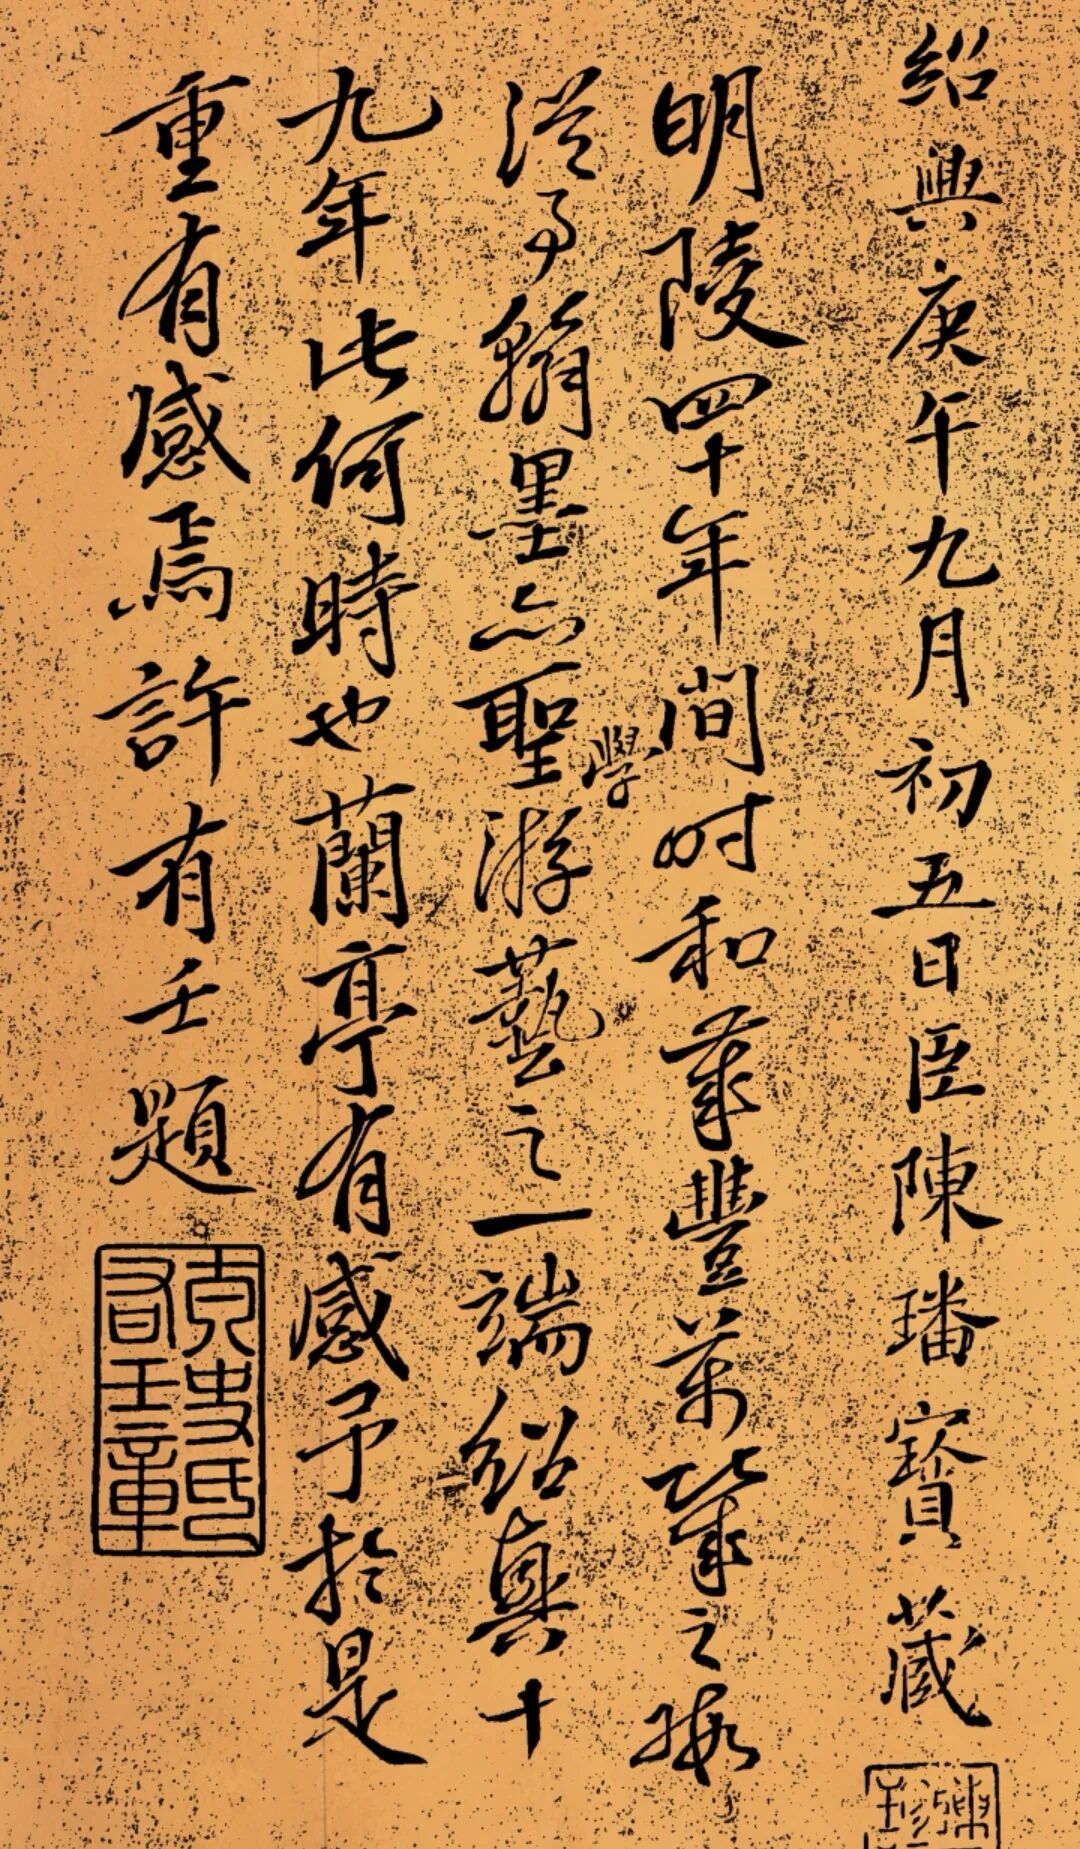 紹興庚午九月初五日臣陳璠寶藏
明陵四十年間时和歲豐萬幾之暇
從事翰墨亦聖學游藝之一端紹興十
九年此何時也蘭亭有感予於是
重有感焉許有壬題
有壬章